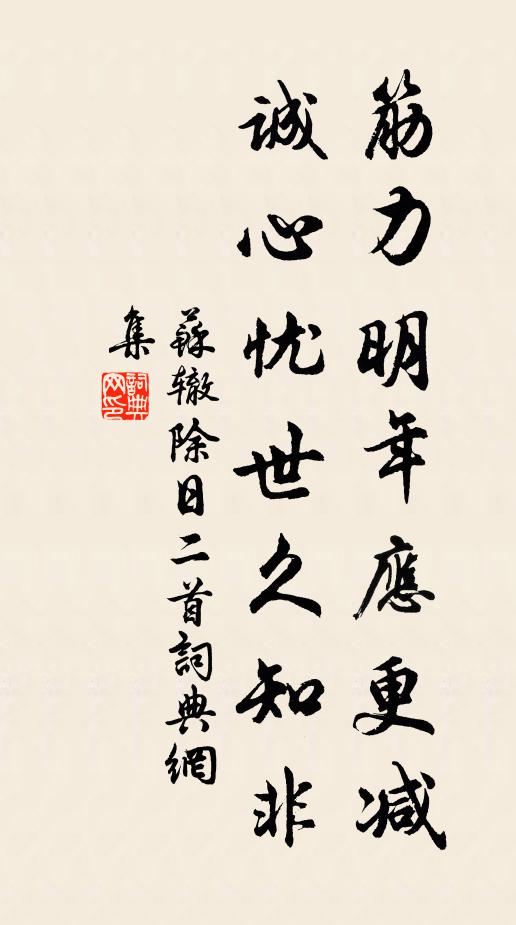 筋力明年應更减
誠心忧世久知非
蘇辙除日二首詞典網
集
詞典网印